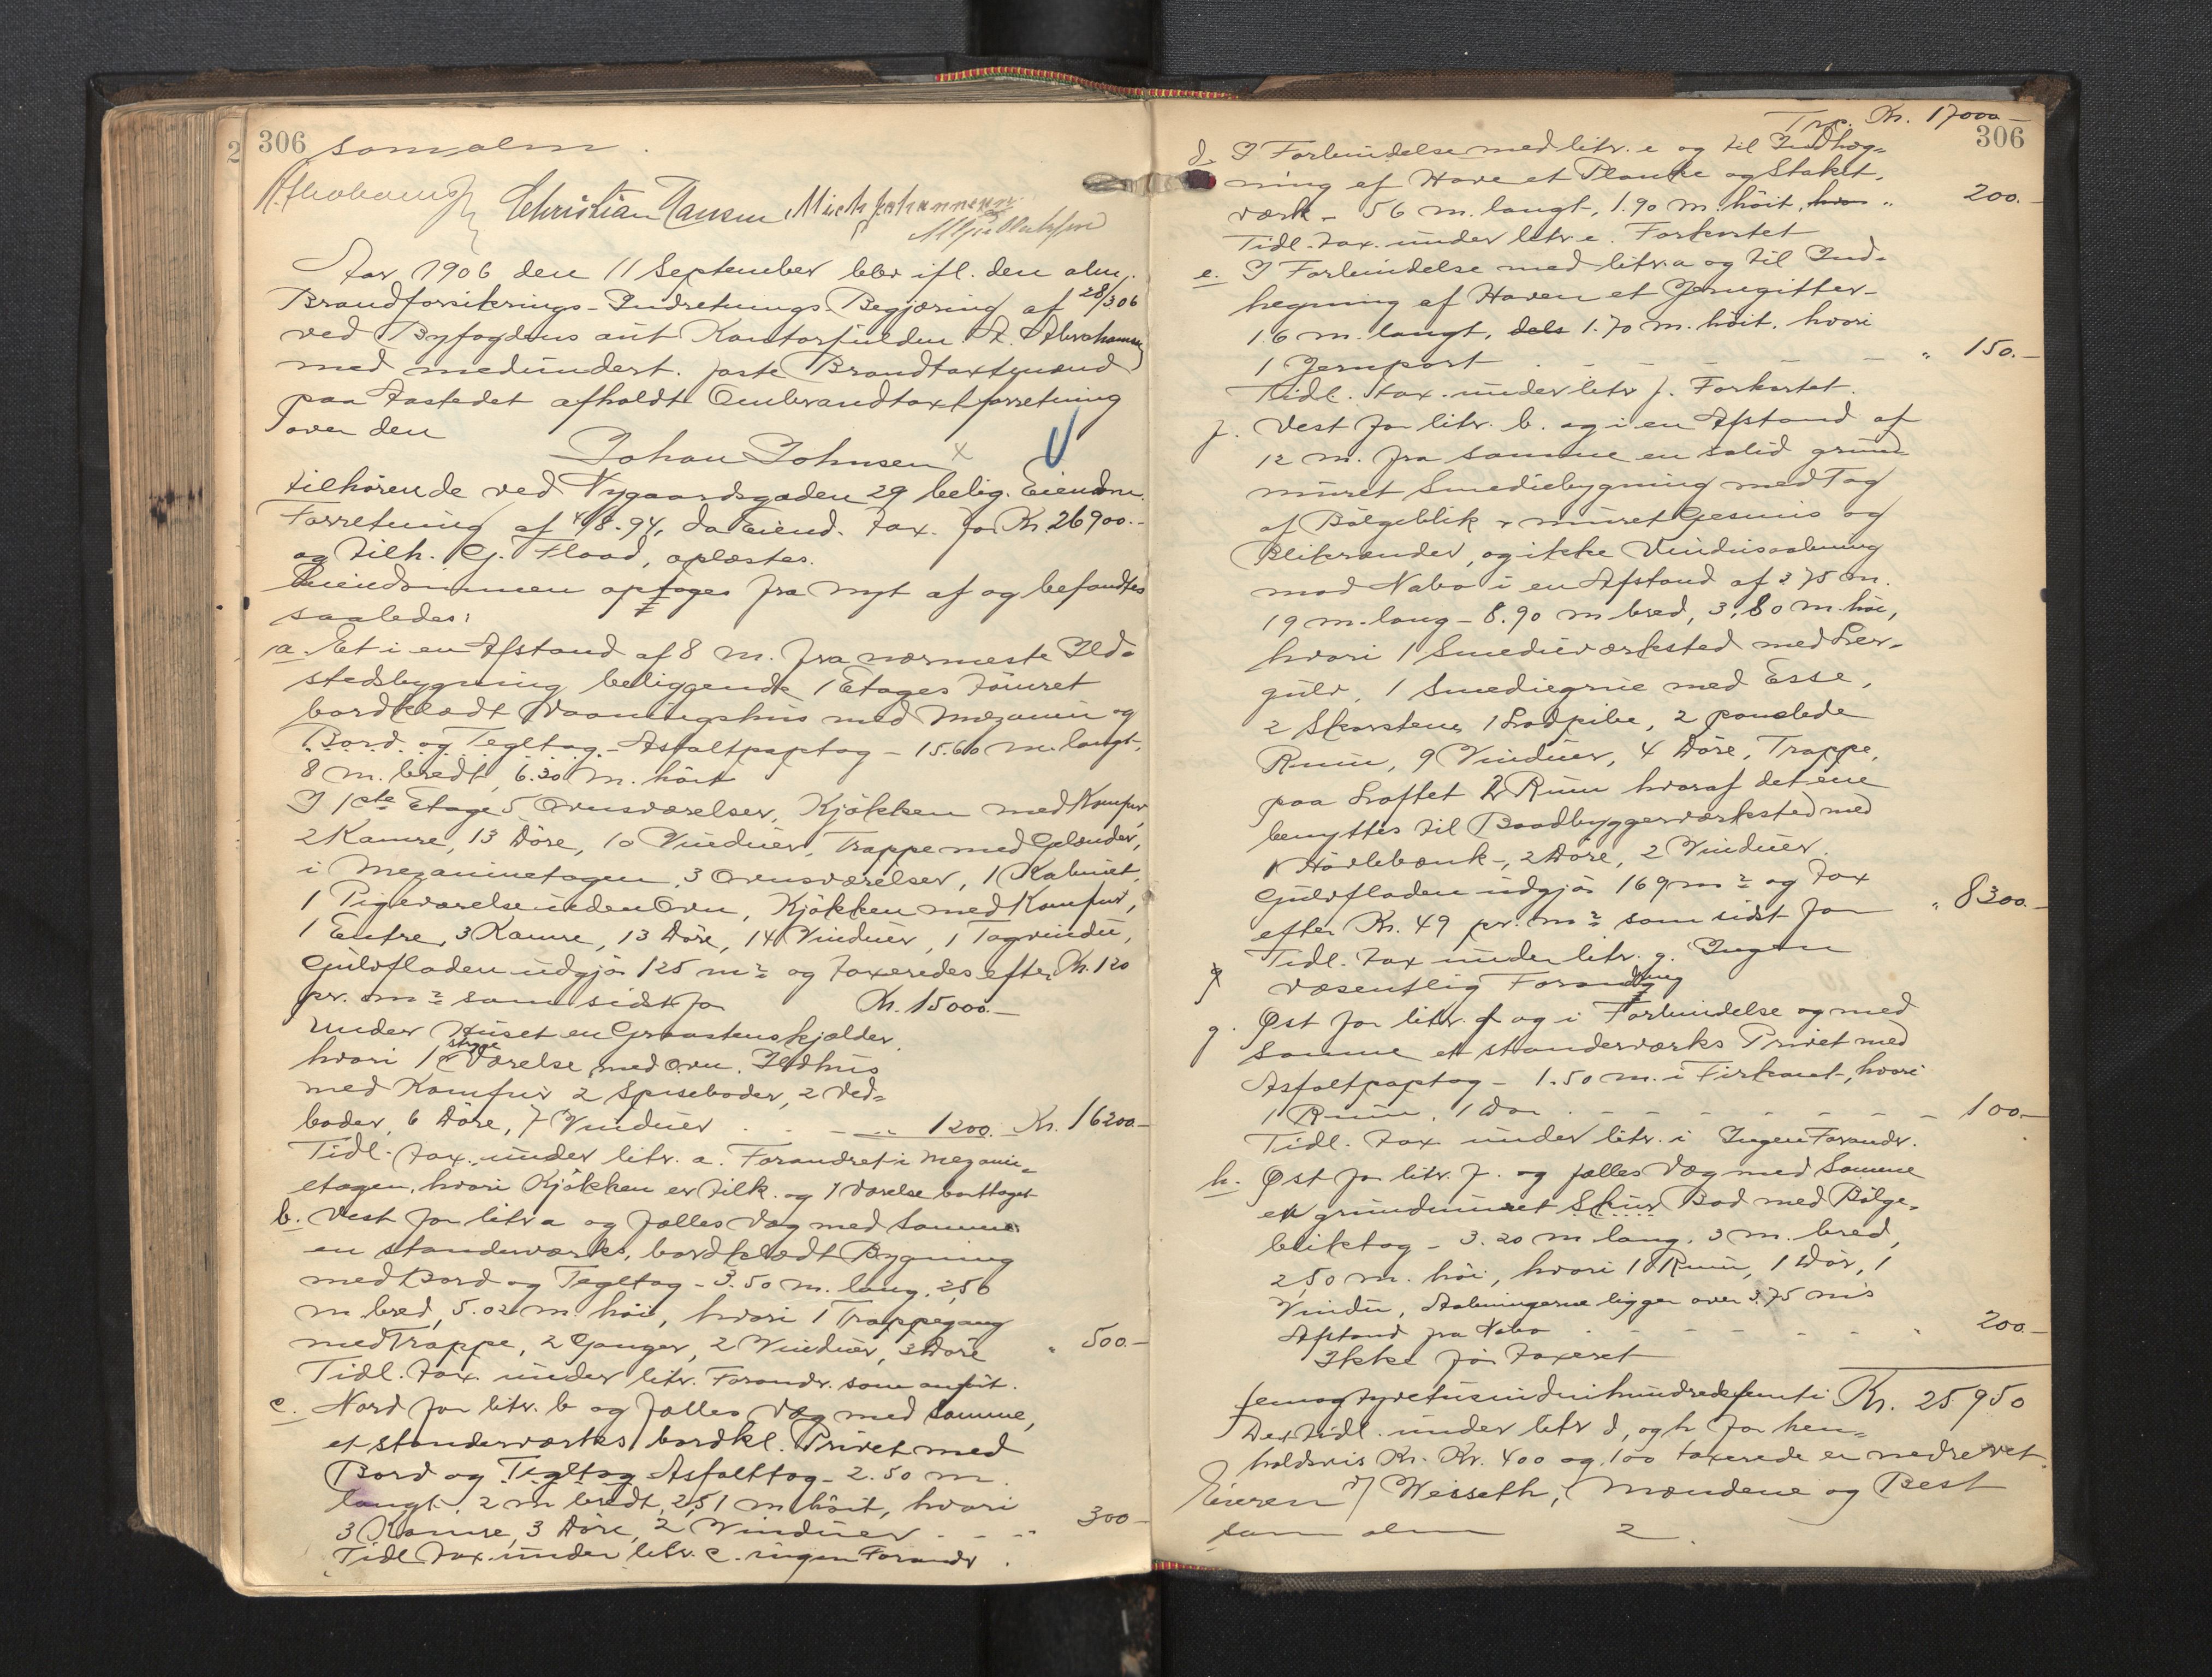 306 som alm.
Christian Hansen Mich Johannesen
Aar 1906 den 11 September blev ifl. den alm.
Brandforsikrings-Indretnings Begjæring af 28/3 06
ved Byfogdens aut Kontorfuldm. A. Abrahamsen
med medundert. faste Brandtaxtmænd
paa Aastedet afholdt Ombrandtaxtforretning
over den
Johan Johnsen x
tilhørende ved Nygaardsgaden 29 belig. Eiendom.
Forretning af 4/8-94, da Eiend. tax. for Kr. 26900.-
og tilh. G. Flood, oplæstes.
Eiendommen optoges fra nyt af og befandtes
saaledes:
a. Et i en Afstand af 8 m. fra nærmeste Ild-
stedsbygning beliggende 1 Etages tømret
bordklædt Vaaningshus med Mezanin og
Bord og Tegltag - Asfaltpaptag - 15.60 m. langt,
8 m. bredt, 6.30 m. høit
I 1ste Etage 5 Ovnsværelser, Kjøkken med Komfur,
2 Kamre, 13 Døre, 10 Vinduer, Trappe med Gelænder,
i Mezaninetagen 3 Ovnsværelser, 1 Kabinet,
1 Pigeværelse uden Ovn, Kjøkken med Komfur,
1 Entre, 3 Kamre, 13 Døre, 14 Vinduer, 1 Tagvindu,
Gulvfladen udgjør 125 m² og taxeredes efter Kr. 120
pr. m² som sidst for Kr. 15000.-
Under Huset en Graastenskjælder,
hvori 1 stryge Værelse med Ovn. Ildhus
med Komfur 2 Spiseboder, 2 Ved-
boder, 6 Døre, 7 Vinduer . . - " 1200.- Kr. 16200.-
Tidl. tax. under litr. a. Forandret i Mezanin-
etagen, hvori Kjøkken er tilk. og 1 Værelse borttaget
b. Vest for litr a og fælles Væg med Samme
en standerværks, bordklædt Bygning
med Bord og Tegltag - 3.50 m. lang, 2,56
m bred, 5.02 m. høi, hvori 1 Trappegang
med Trappe, 2 Gange, 2 Vinduer, 3 Døre " 500.-
Tidl. tax. under litr. Forandr. som anført.
c. Nord for litr. b og fælles Væg med Samme,
et standerværks bordkl. Privet med
Bord og Tegltag Asfalttag - 2.50 m.
langt, 2 m bredt, 2,51 m høit, hvori
3 Kamre, 3 Døre, 2 Vinduer - - " 300-
Tidl tax. under litr. c. ingen Forandr.
Trp. Kr. 17000-
306
d. I Forbindelse med litr. e og til Indheg-
ning af Have et Planke og Stakit-
værk - 56 m. langt, 1.90 m. høit, hvor " 200.-
Tidl. tax. under litr e. Forkortet
e. I Forbindelse med litr. a og til Ind-
hegning af Haven et Jerngitter-
16 m. langt, dels 1.70 m. høit, hvori
1 Jernport - - - - " 150.-
Tidl. tax. under litr f. Forkortet.
f. Vest for litr. b. og i en Afstand af
12 m. fra samme en solid grund-
muret Smediebygning med Tag
af Bølgeblik & muret Gesims og
Blikrender, og ikke Vinduesaabning
mod Nabo i en Afstand af 3.75 m.
19 m. lang - 8.90 m. bred, 3,80 m. høi,
hvori 1 Smedieværksted med Ler-
gulv, 1 Smediegrue med Esse,
2 Skorstene, 1 Lodpibe, 2 panelede
Rum, 9 Vinduer, 4 Døre, Trappe,
paa Loftet 2 Rum hvoraf det ene
benyttes til Baadbyggerværksted med
1 Høvlebænk -, 2 Døre, 2 Vinduer.
Gulvfladen udgjør 169 m² og tax
efter Kr. 49 pr. m² som sidst for " 8300.-
Tidl. tax under litr. g. Ingen
væsentlig Forandring
g. Øst for litr. f og i Forbindelse og med
Samme et standerværks Privet med
Asfaltpaptag - 1.50 m. i Firkant, hvori
1 Rum, 1 Dør - - - - - 100.-
Tidl. tax under litr. i Ingen Forandr.
h. Øst for litr. f. og fælles Væg med Samme
en grundmuret Skur Bod med Bølge-
bliktag - 3.20 m lang, 3 m. bred,
2,50 m. høi, hvori 1 Rum, 1 Dør, 1
Vindu, Aabningerne ligger over 3.75 m's
Afstand fra Nabo - - - - " 200.-
Ikke før taxeret
femogtyvetusindnihundredefemti Kr. 25950
De tidl. under litr d, og h for hen-
holdsvis Kr. Kr. 400 og 100 taxerede er nedrevet.
Eieren v/ Wesseth, Mændene og Best
som alm